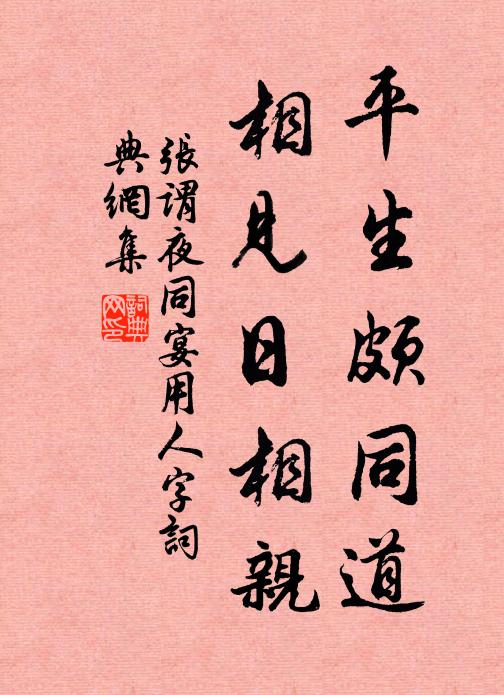 平生頗同道
相見日相親
張謂夜同宴用人字詞
典網集
詞典
网印